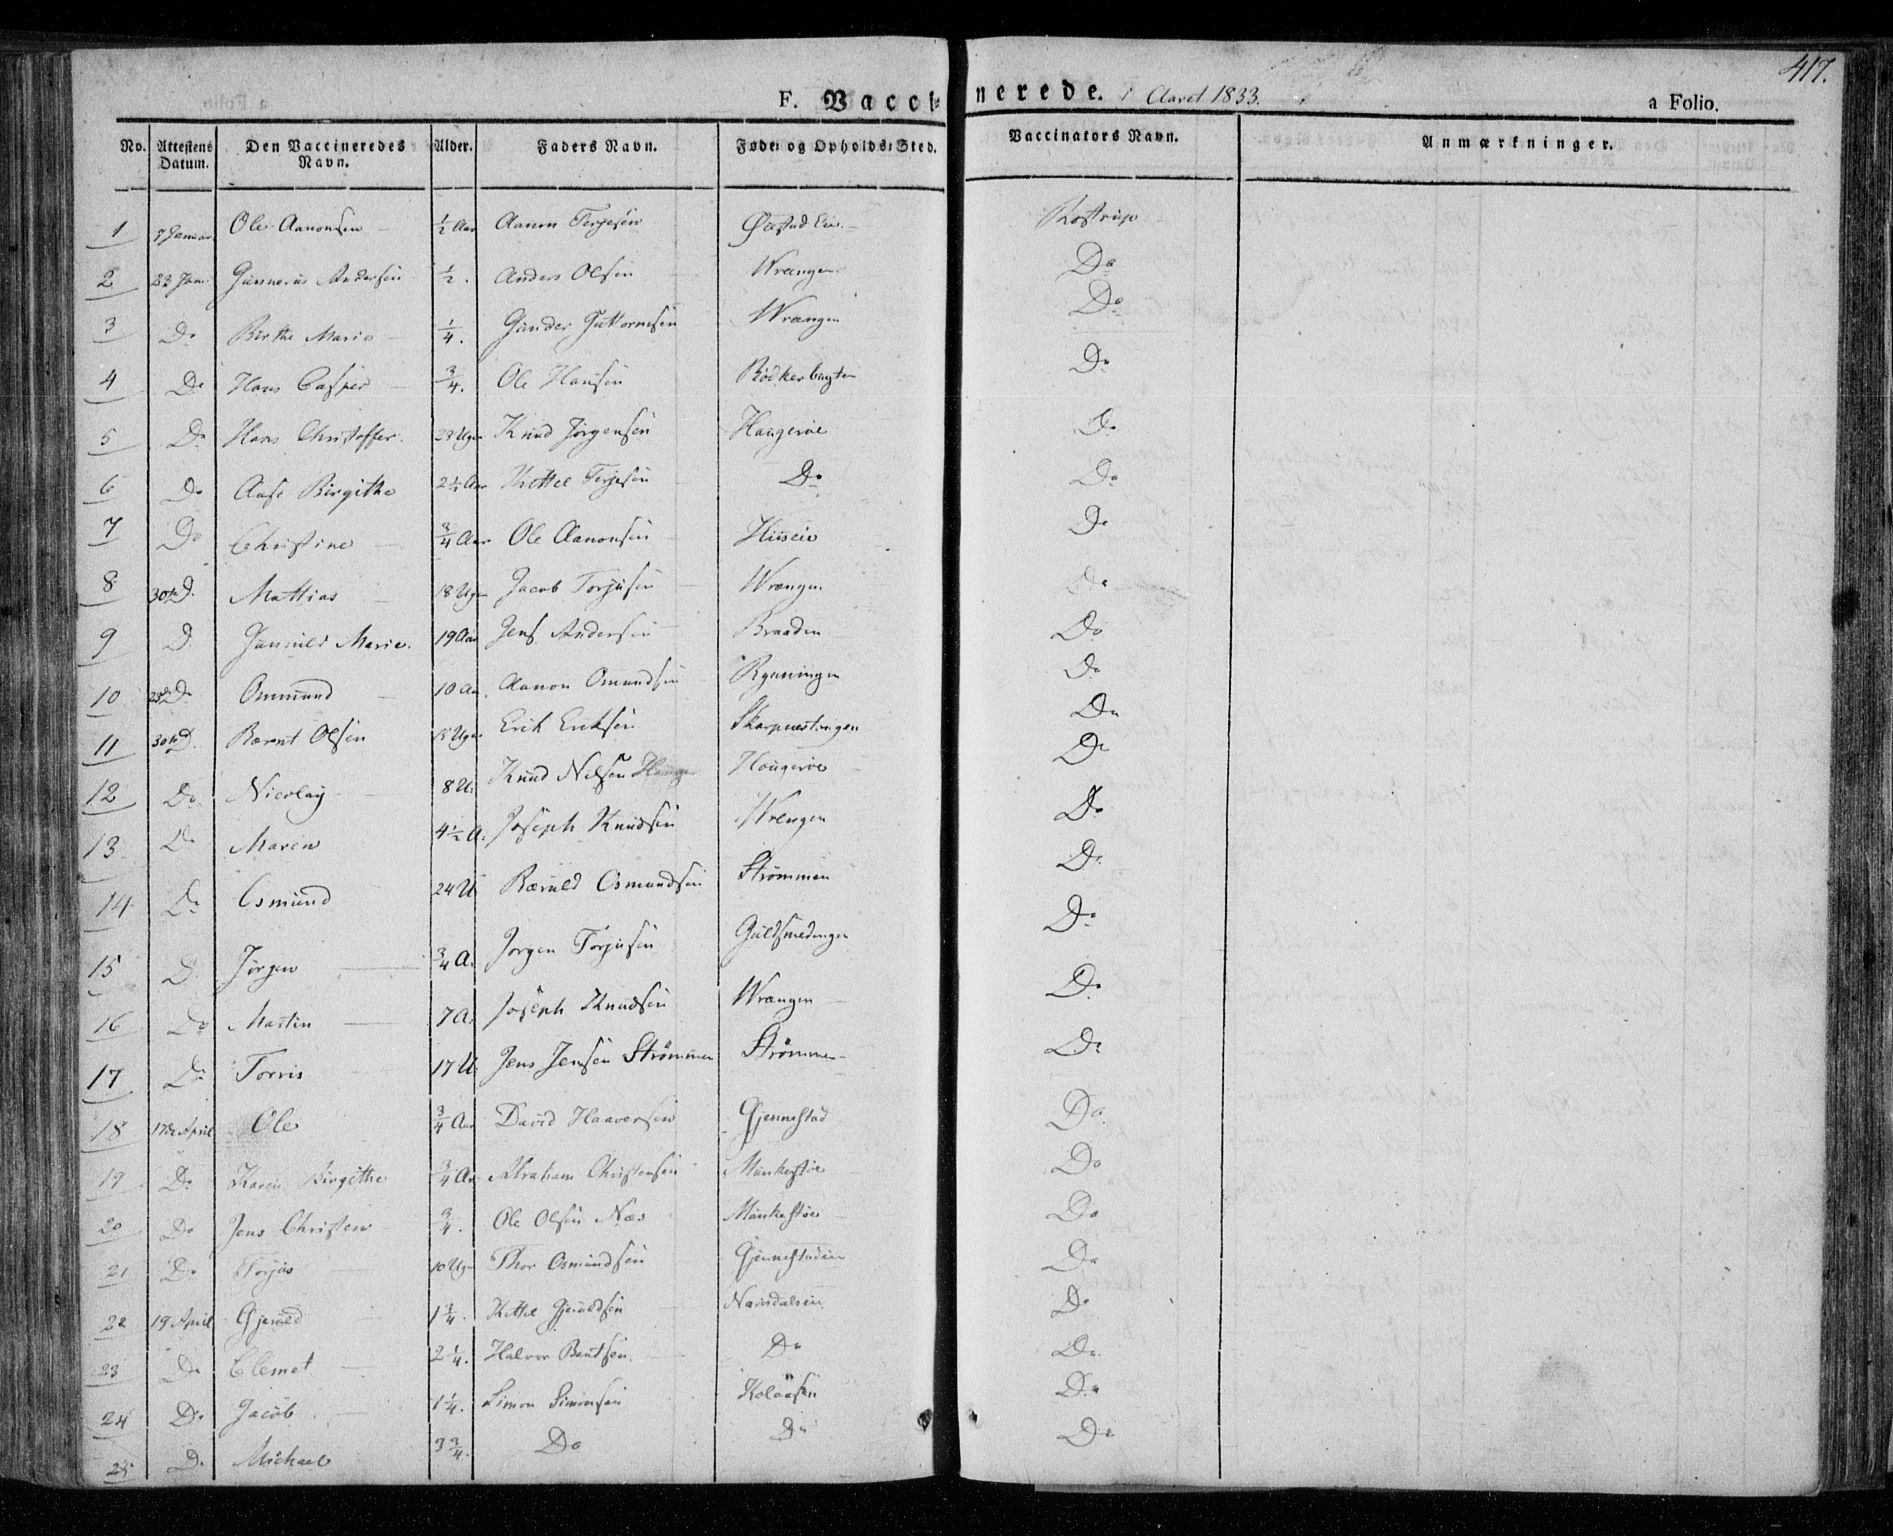 417.
F. Vaccinerede. i Aaret 1833. a Folio.
No. Attestens Datum. Den Vaccineredes Navn. Alder. Faders Navn. Føde- og Opholds-Sted. Vaccinators Navn. Anmærkninger.
1 7 Januar Ole Aanonsen ½ Aar Aanon Terjesen Kostrup
2 23 Jan: Gunnerus Andersen ½. Anders Olsen Wrængen Do
3 Do Birthe Marie ¼. Gunder Guttormsen Wrængen Do
4 Do Hans Casper ¾. Ole Hansen Rödkerbugten Do
5 Do Hans Christoffer. 23 Uger Knud Jörgensen Haugeröe Do
6 Do Aase Birgithe 2½ Aar Kettel Terjesen Do Do
7 Do Christine ¾ Aar Ole Aanonsen Huseie Do
8 30te D. Mattias 18 Uger Jacob Torjusen Wrængen Do
9 D. Gunnild Marie. 19 Aar Jens Andersen Braaden Do
10 Do Ommund 10 Aar. Aanon Omundsen Ryeningen Do
11 30te D. Bærnt Olsen 15 Uger Erik Eriksen Do
12 Do. Nicolay 8 U. Knud Nielsen Haugeröe Do
13 Do Maren 4½ A. Joseph Knudsen Wrengen Do
14 Do Osmund 24 U Bæruld Osmundsen Strömmen Do
15 D. Jörgen ¾ A. Jörgen Torjusen Guldsmedengen Do
16 Do Martin 7 A. Joseph Knudsen Wrængen Do
17 Do Torris 17 U. Jens Jensen Strömmen Strömmen Do
18 17de April Ole ¾ Aar David Haaversen Gjennestad Do
19 Do Karen Birgithe ¾ Aar Abraham Christensen Munkestöe Do
20 Do Jens Christen ¾. Ole Olsen Næs Munkestöe Do
21 Do Torjus 10 Uger Thor Osmundsen Gjennestadeie Do
22 19 April Gjeruld 1¾. Kittel Gjeruldsen Do
23 Do Clemet 2¼. Halvor Bentsen Do Do
24 Do Jacob 1¼. Simon Simonsen Kolaasen Do
25 D. Michael 3¾. Do Do Do